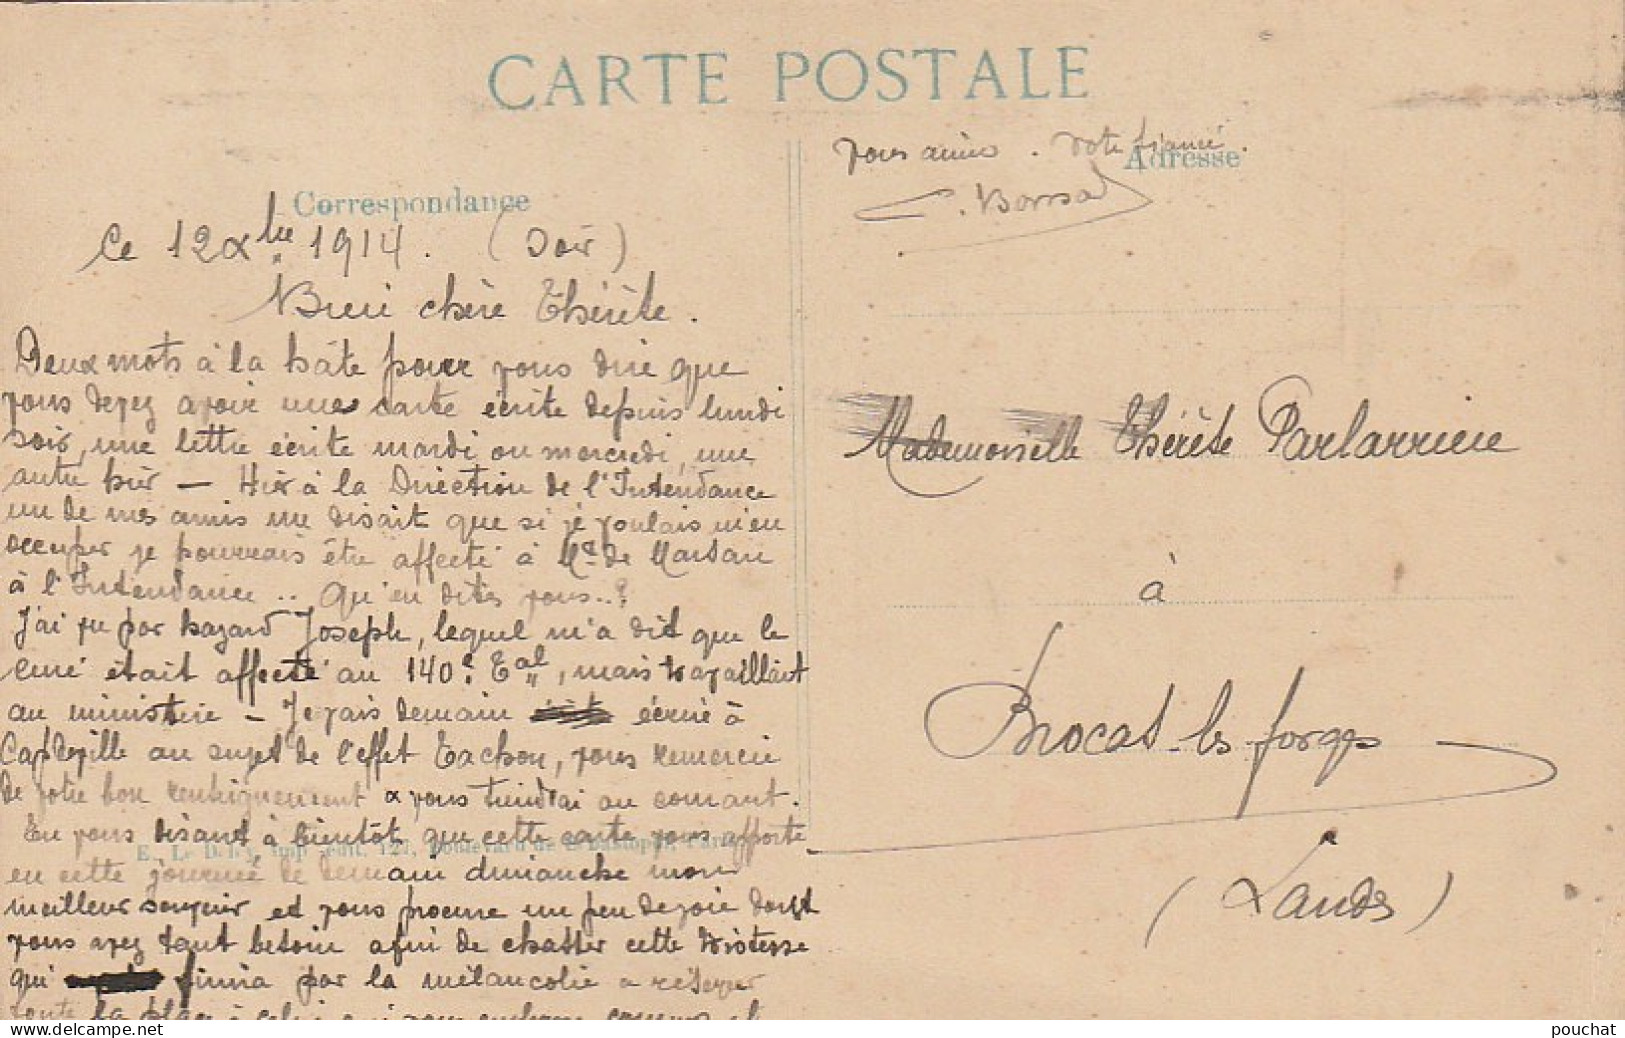 CARTE POSTALE
Correspondance
Ce 12 Xbre 1914. (Soir)
Bien chère Thérèse.
Deux mots à la hâte pour vous dire que
vous devez avoir une carte écrite depuis lundi
soir, une lettre écrite mardi ou mercredi, une
autre hier — Hier à la Direction de l'Intendance
un de mes amis me disait que si je voulais m'en
occuper je pourrais être affecté à Mt de Marsan
à l'Intendance .. Qu'en dites vous..?
J'ai vu par hazard Joseph, lequel m'a dit que le
curé était affecté au 140e Eal, mais travaillait
au ministère — Je vais demain écrire à
Capdeville au sujet de l'effet Cachou, vous remercie
de votre bon renseignement & vous tiendrai au courant.
En vous disant à bientôt, que cette carte vous apporte
en cette journée de demain dimanche mon
meilleur souvenir et vous procure un peu de joie dont
vous avez tant besoin afin de chasser cette tristesse
qui finira par la mélancolie a réserver
toute la place à celui qui vous embrasse comme et
vous aime. Votre fiancé.
Adresse
Mademoiselle Thérèse Parlarrieu
à
Brocas-les forges
(Landes)
pouchat